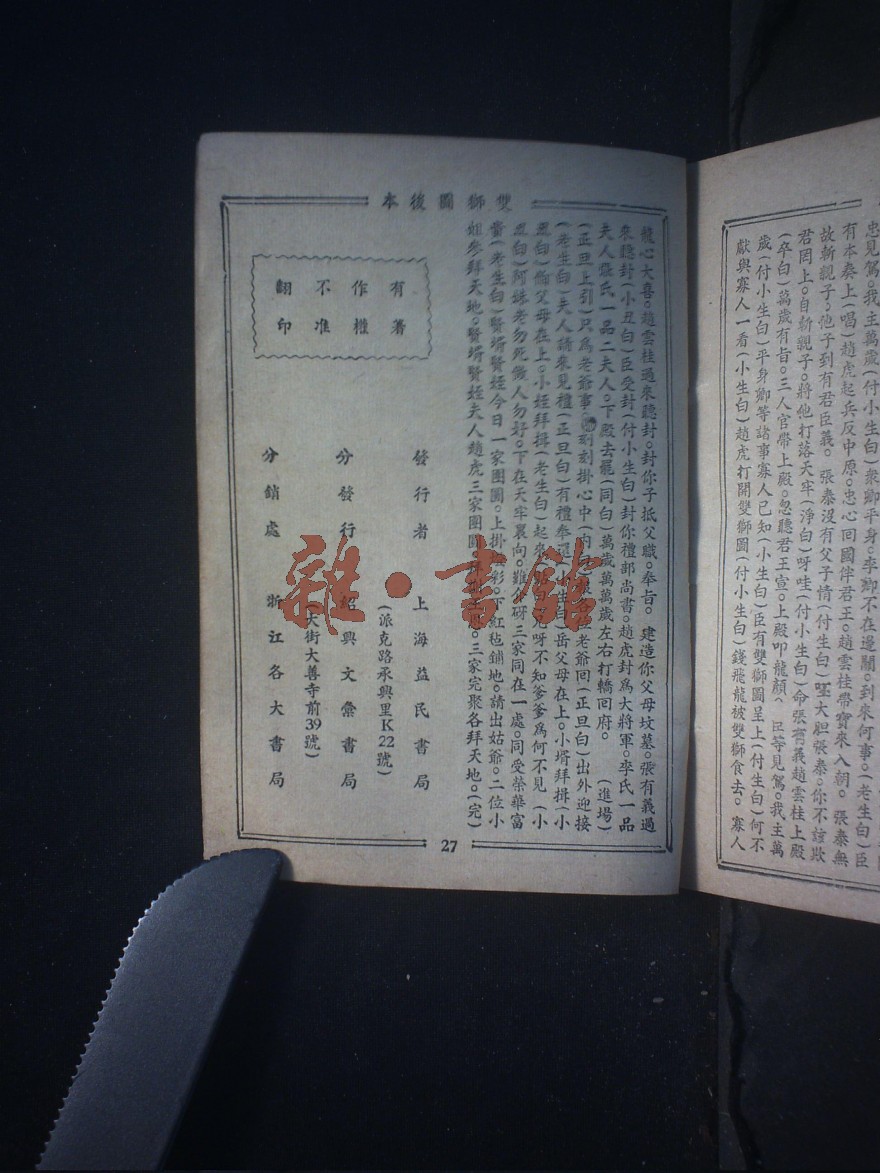 忠見駕。我主萬歲(付小生白)衆卿平身。李卿在邊關。到來何事。(老生白)臣
有本奏上(唱)趙虎起兵反中原。忠心回國伴君王。趙雲桂帶寶來入朝。張泰無
故斬親子。他子到有君臣義。張泰沒有父子情(付生白)噁大胆張泰。你不該欺
君罔上。自斬親子。將他打落天牢(淨白)呀哇(付小生白)命張有義趙雲桂上殿
(卒白)萬歲有旨。三人官帶上殿。忽聽君王宣。上殿叩龍顏(臣等見駕。我主萬
歲(付小生白)平身卿等諸事寡人已知(小生白)臣有雙獅圖呈上(付生白)何不
獻與寡人一看(小生白)趙虎打開雙獅圖(付小生白)錢飛龍被雙獅食去。寡人
雙獅圖後本
龍心大喜。趙雲桂過來聽封。封你子抵父職。奉旨。建造你父母坟墓。張有義過
來聽封(小丑白)臣受封(付小生白)封你禮部尚書。趙虎封爲大將軍。李氏一品
夫人張氏一品二夫人。下殿去罷(同白)萬歲萬萬歲左右打轎回府。(進場)
(正旦上引)只爲老爺事。刻刻掛心中(內白)老爺回(正旦白)出外迎接
(老生白)夫人請來見禮(正旦白)有禮奉還(小生白)岳父母在上。小壻拜揖(小
丑白)爺父母在上。小姪拜揖(老生白)起來見呀不知爹爹爲何不見(小
丑白)阿妹老勿死做人勿好。下在天牢裏向。難介呀三家同在一處。同受榮華富
貴(老生白)賢壻賢姪今日一家團圓。上掛彩。下紅毡鋪地。請出姑爺。二位小
姐參拜天地。賢壻賢姪夫人趙虎三家團圓。三家完聚各拜天地。(完)
有著
作權
不准
翻印
發行者 上海益民書局
(派克路承興里K22號)
分發行 紹興文彙書局
(大街大善寺前39號)
分銷處 浙江各大書局
27
雜·書館